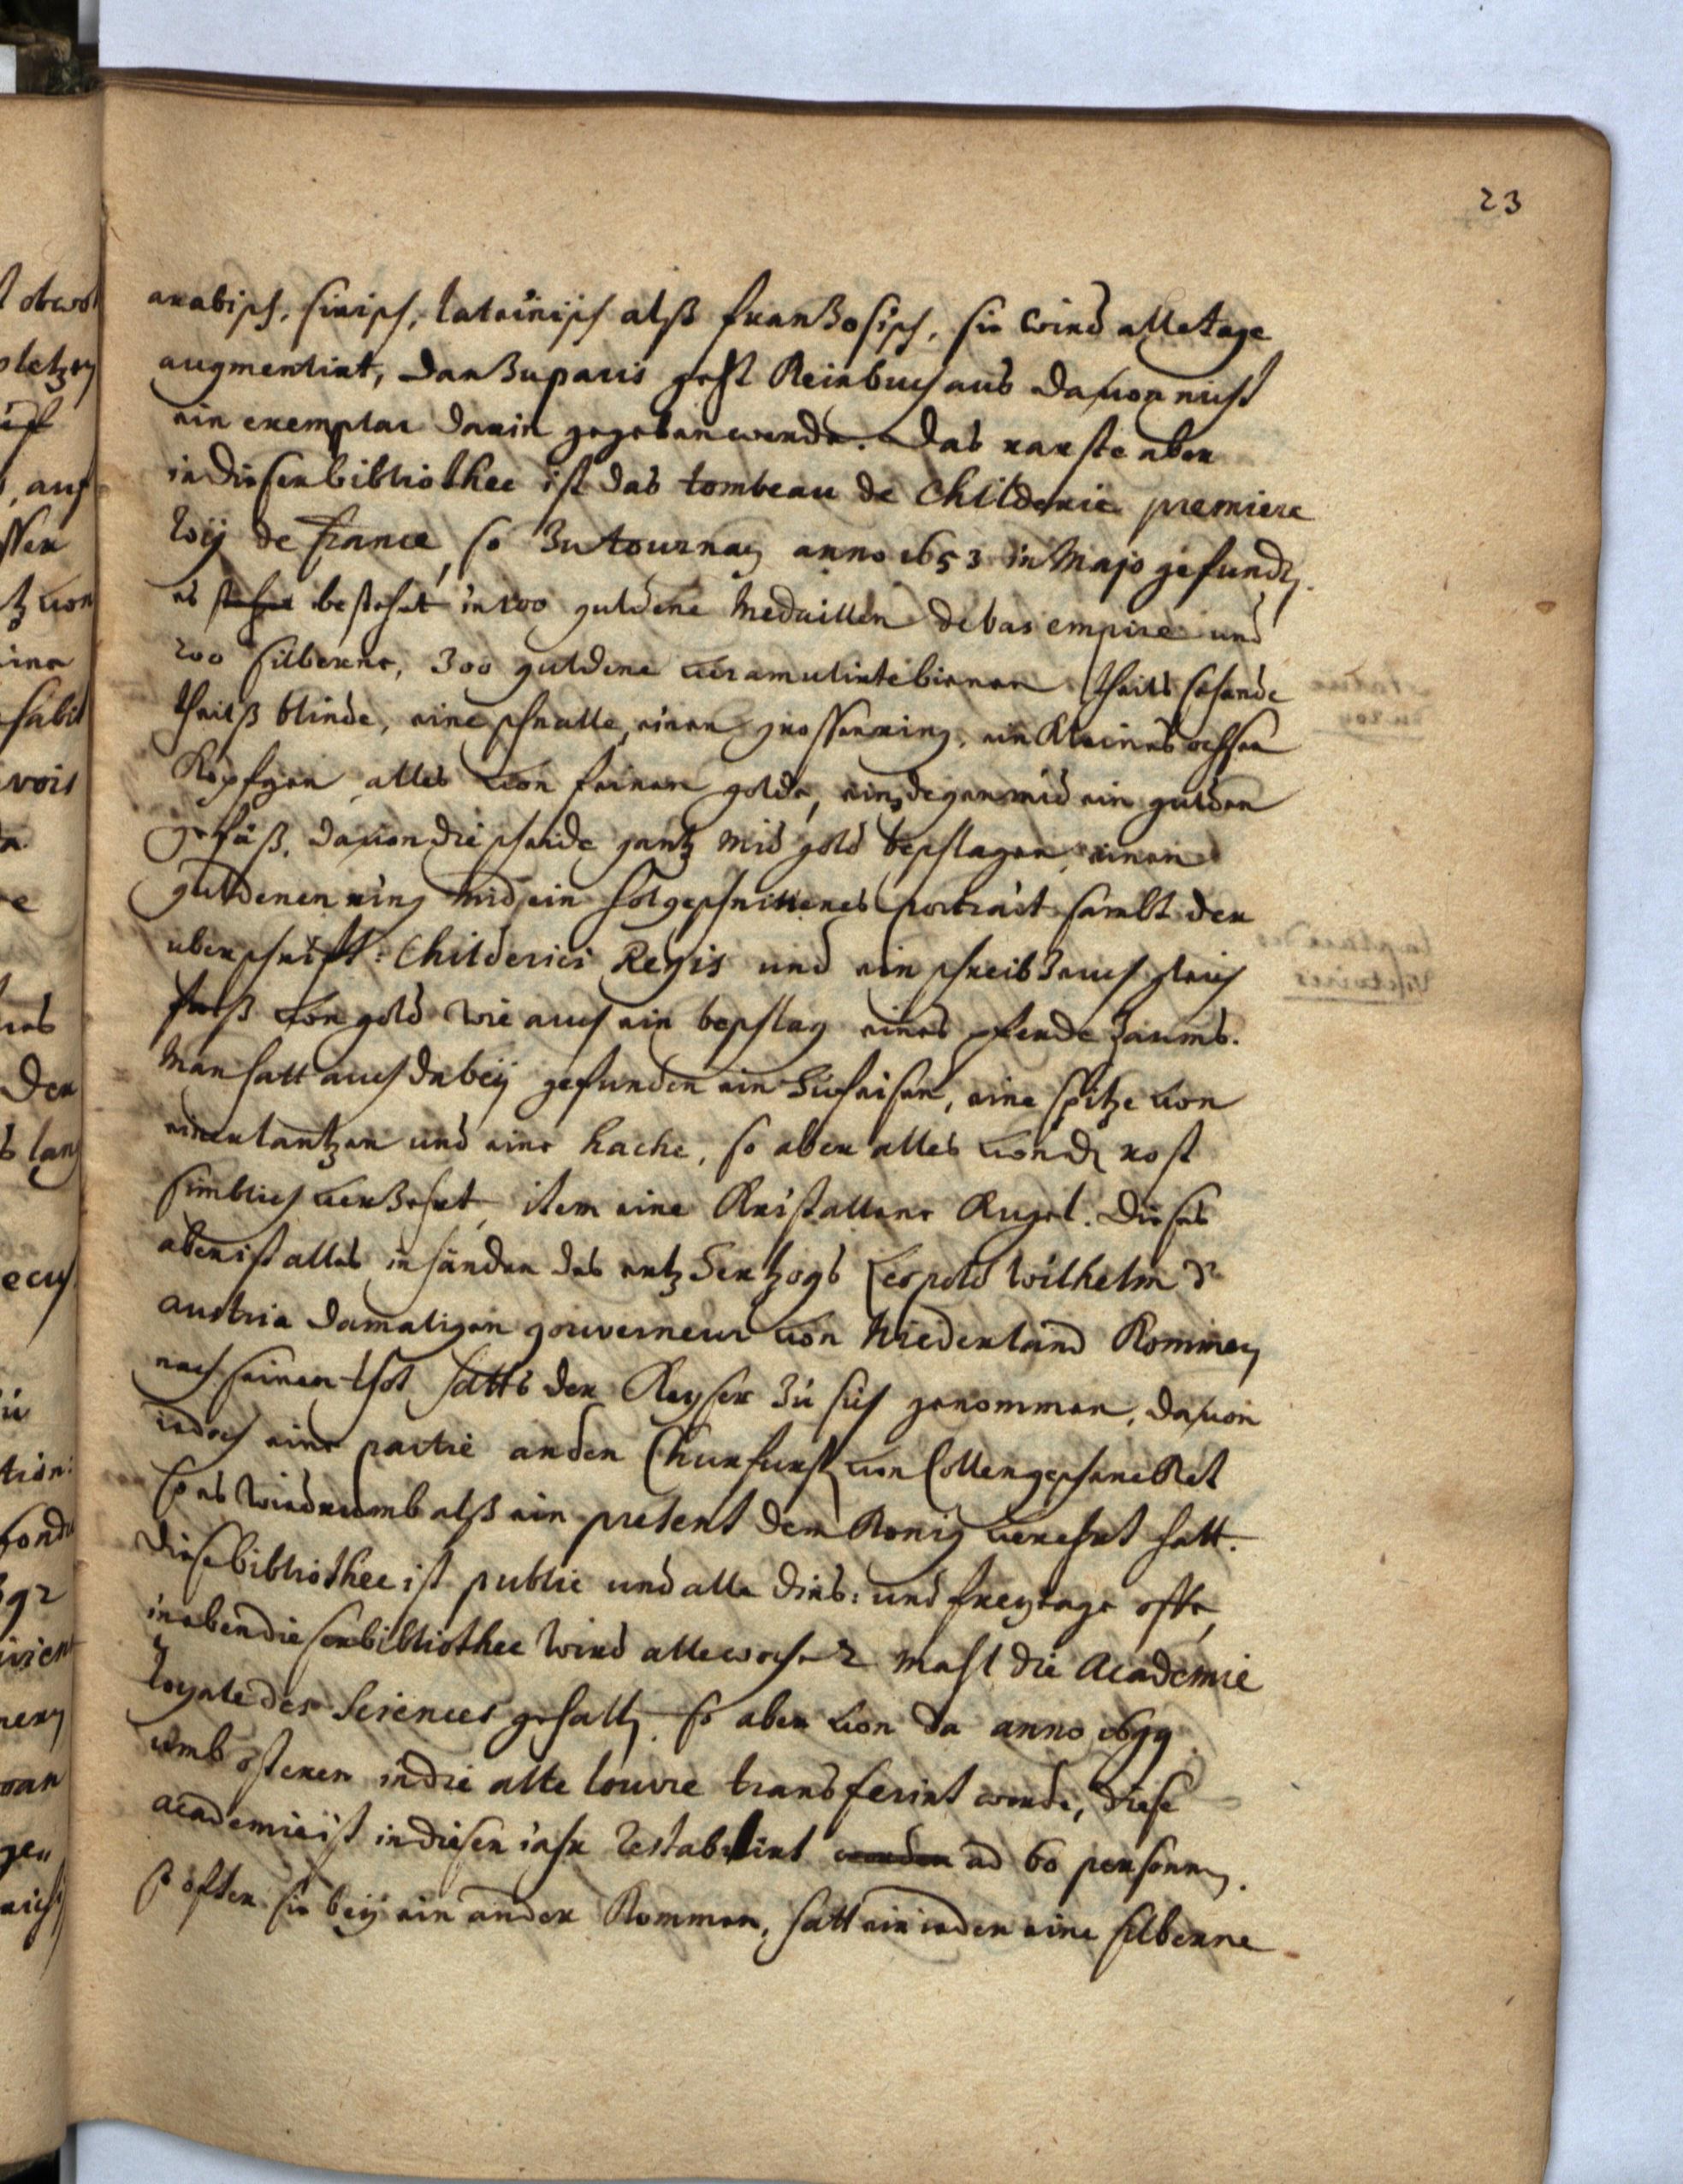 23
arabisch, sirisch, lateinisch alß franzosisch, sie wird alle tage
augmentirt, dan zu paris geht kein buch aus davon nicht
ein exemplar darin gegeben werde. Das rarste aber
in dieser bibliothec ist das tombeau de Childeric premiere
Roÿ de france, so zu tournay anno 1653 in Majo gefunden.
es stehet bestehet in 100 guldene Medaillen de bas empire und
200 silberene, 300 guldene bienen theils sehende
theilß blinde, eine schnalle, einen grossen ring, ein kleines ochsen
köpfgen alles von feinen golde, ein degen mid ein gulden
gefäß, davon die scheide gantz mid gold beschlagen, einen
guldenen ring mid ein holgeschnittenes portrait sambt der
uberschrift: Childerici Regis und ein schreibzeuch gleich
falß von gold wie auch ein beschlag eines pferde zaums.
Man hatt auch dabeÿ gefunden ein Hufeisen, eine spitze von
einer lantzen und eine hache, so aber alles von den rost
simblich verzehrt, item eine Kristallene Kugel. Dieses
aber ist alles in händen des ertz Hertzogs Leopold Wilhelm d'
austria damaligen gouverneur von Niederland kommen
nach seinen thot hatts der Keyser zu sich genommen, davon
iedoch eine partie an den Churfurst von Collen geschencket
so es wiedrumb alß ein present dem Konig verehrt hatt.
Diese bibliothec ist public und alle dins: und freytage offe,
in eben dieser bibliothec wird alle woche 2 mahl die Academie
Royale des Sciences gehalten. so aber von da anno 1699
umb osteren in die alte louvre transferirt wurde, diese
academie ist in diesen iahr restablirt worden ad 60 personen.
so öfter sie beÿ ein ander kommen, hatt ein ieder eine silberne